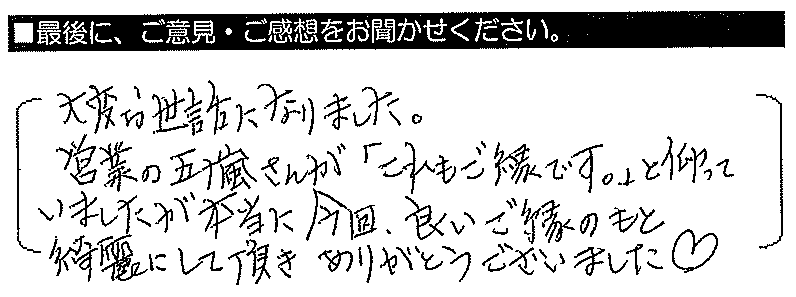 ■最後に、ご意見・ご感想をお聞かせください。
大変お世話になりました。
営業の五十嵐さんが「これもご縁です。」と仰って
いましたが本当に今回、良いご縁のもと
綺麗にして頂きありがとうございました♡